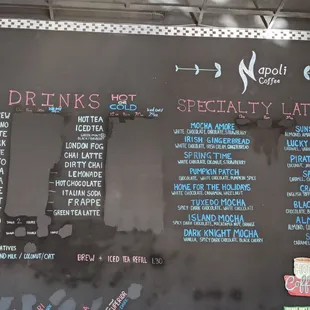 Napoli
Coffee
DRINKS HOT
COLD
SPECIALTY LAT
HOT TEA
ICED TEA
LONDON FOG
CHAI LATTE
DIRTY CHAI
LEMONADE
HOT CHOCOLATE
ITALIAN SODA
FRAPPE
GREEN TEA LATTE
MOCHA AMORE
WHITE CHOCOLATE, CHOCOLATE, STRAWBERRY
IRISH GINGERBREAD
WHITE CHOCOLATE, IRISH CREAM, GINGERBREAD
SPRING TIME
WHITE CHOCOLATE, COCONUT, STRAWBERRY
PUMPKIN PATCH
CHOCOLATE, WHITE CHOCOLATE, PUMPKIN SPICE
HOME FOR THE HOLIDAYS
WHITE CHOCOLATE, CINNAMON, HAZELNUT
TUXEDO MOCHA
SPICY DARK CHOCOLATE, WHITE CHOCOLATE
ISLAND MOCHA
SPICY DARK CHOCOLATE, MACADAMIA NUT, COCONUT
DARK KNIGHT MOCHA
VANILLA, SPICY DARK CHOCOLATE, BLACK CHERRY
LUCKY
PIRAT
BLAC
ATIVES
ND MILK / COCONUT / OAT
BREW + ICED TEA REFILL 1.50
SUPERIOR